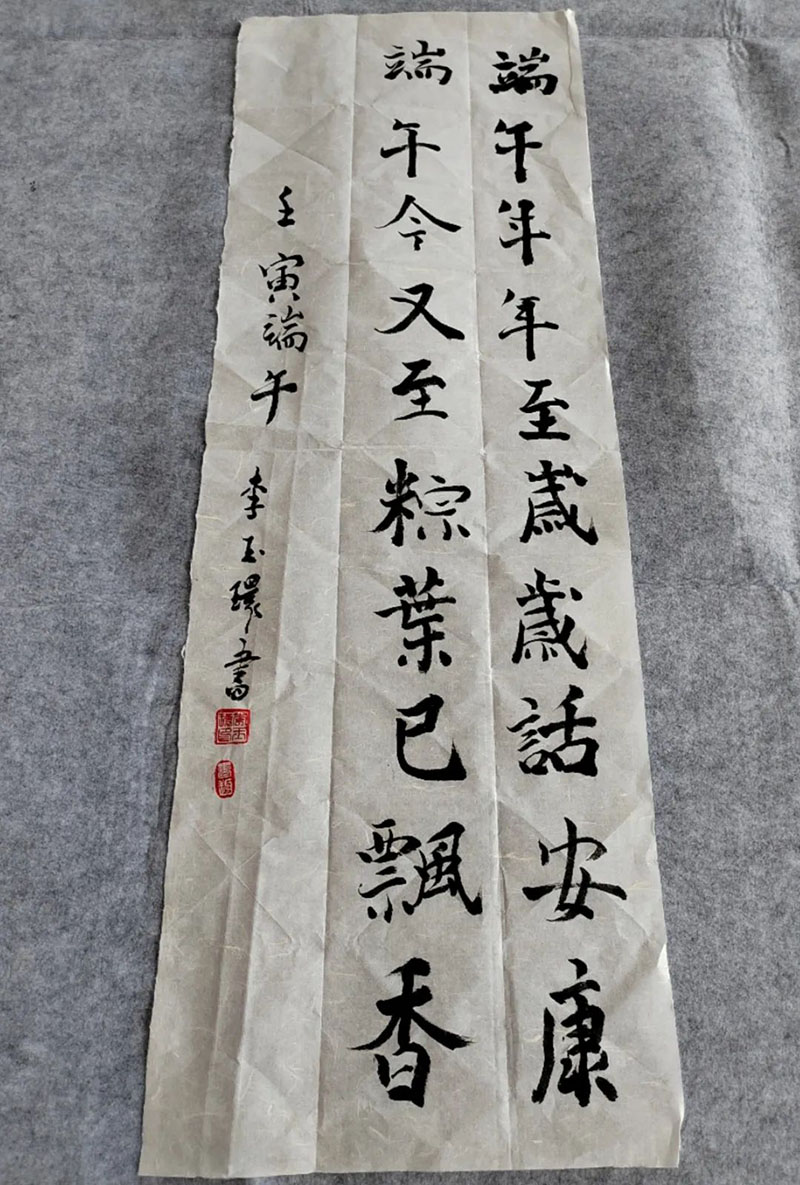 端午年年至歲歲話安康
端午今又至粽葉已飄香
壬寅端午
李玉環書